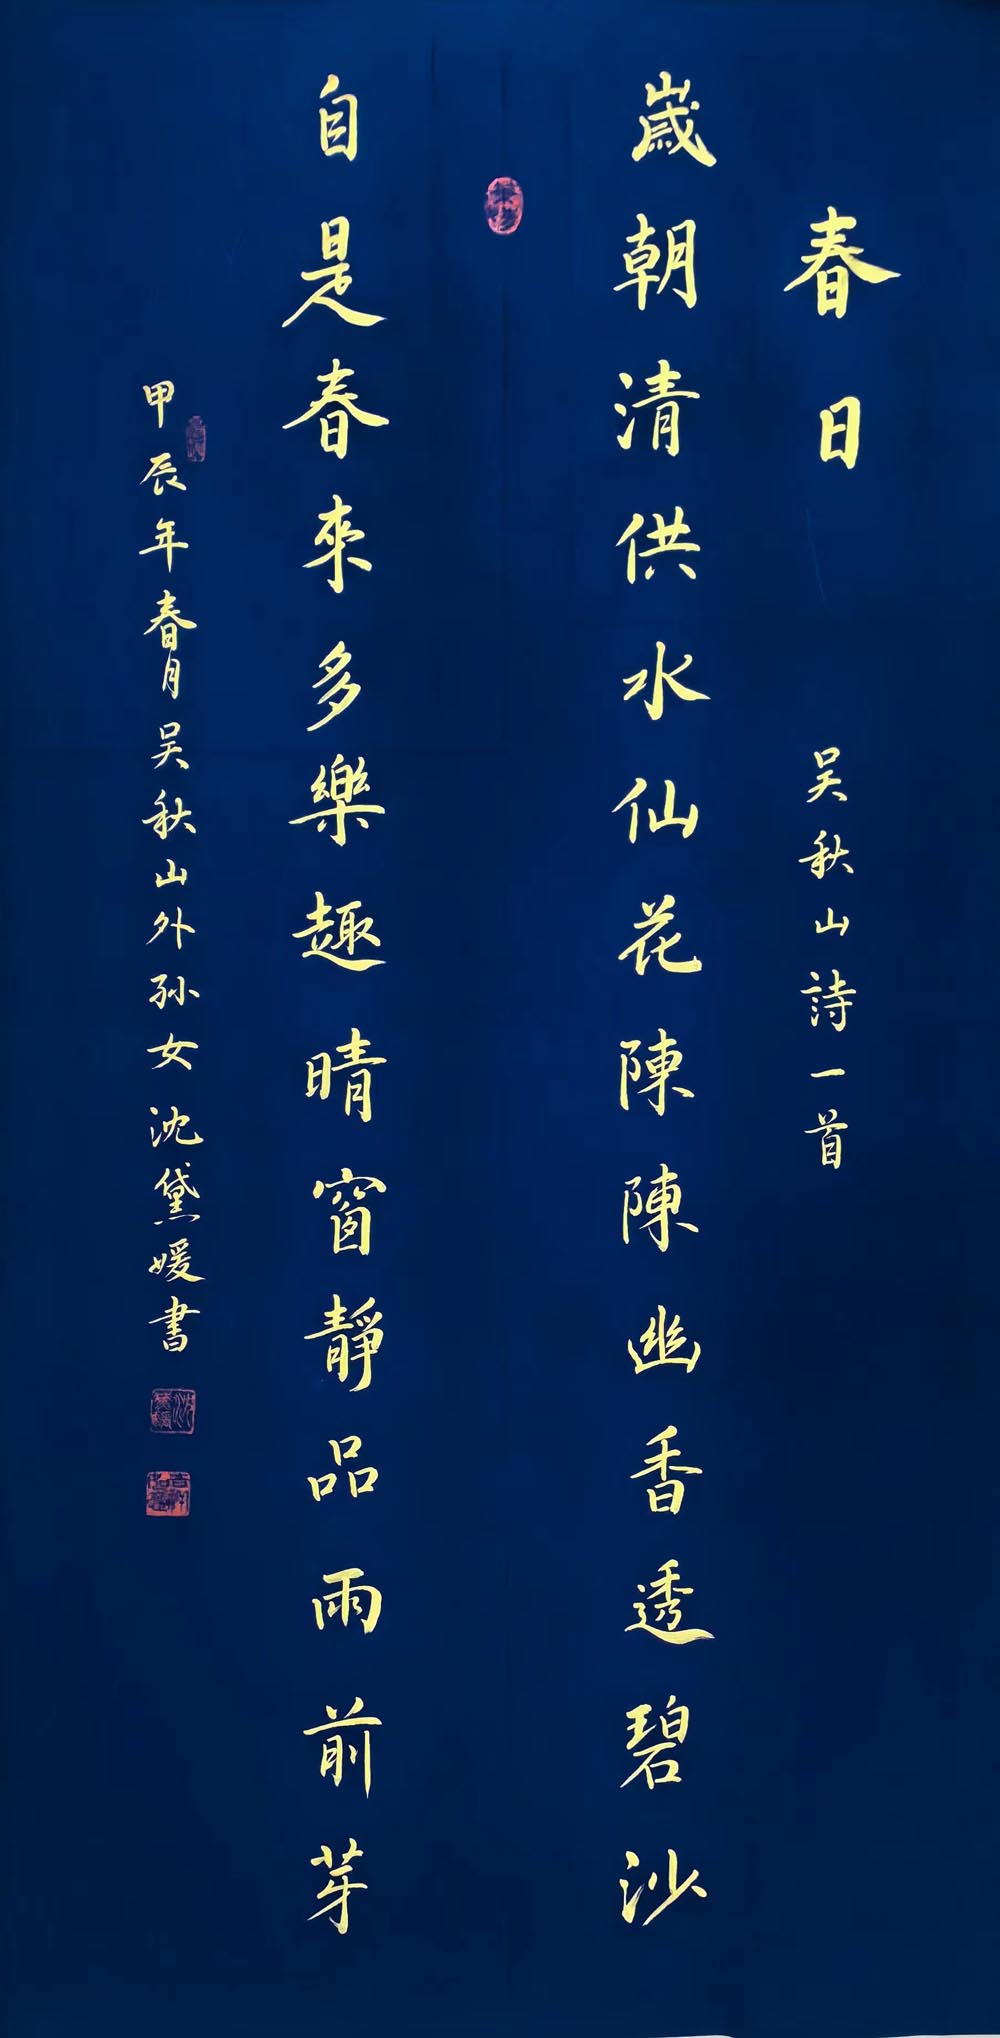 春日 吴秋山詩一首
歲朝清供水仙花陳陳幽香透碧沙
自是春來多樂趣晴窗靜品雨前芽
甲辰年春月吴秋山外孙女沈黛媛書